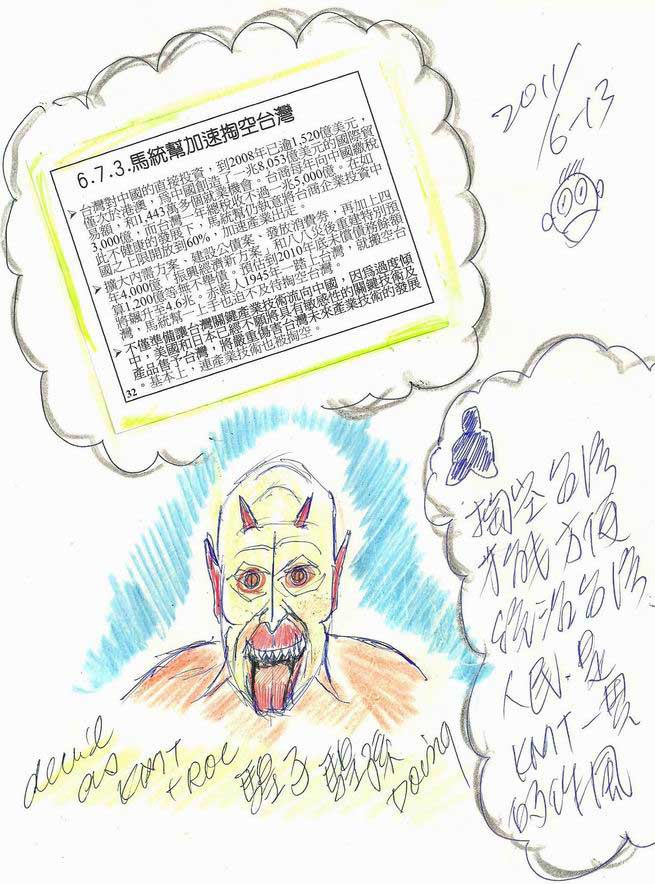 2011/6-13
6.7.3.馬統幫加速掏空台灣
➢台灣對中國的直接投資，到2008年已逾1,520億美元，
僅次於港澳，為中國創造了一兆8,053億美元的國際貿
易額，和1,443萬多個就業機會。台商每年向中國繳稅
3,000億，而台灣一年總稅收不過一兆5,000億。在如
此不健康的發展下，馬統幫仍執意將台商企業投資中
國之上限開放到60%，加速產業出走。
➢擴大內需方案、建設公債案、發放消費券，再加上四
年4,000億「振興經濟新方案」和八八災後重建特別預
算1,200億等無不舉債。預估到2010年底未償債務餘額
將飆升至4.6兆。赤藍人1945年一踏上台灣，就搬空台
灣，馬統幫一上手也迫不及待掏空台灣。
➢不僅準備讓台灣關鍵產業技術流向中國，因為過度傾
中，美國和日本已經不願將具有敏感性的關鍵技術及
產品售予台灣，將嚴重傷害台灣未來產業技術的發展
。基本上，連產業技術也被掏空。
32
掏空台灣
才能方便
統治台灣
人民.是
KMT一貫
的作風
as KMT + ROC Doing